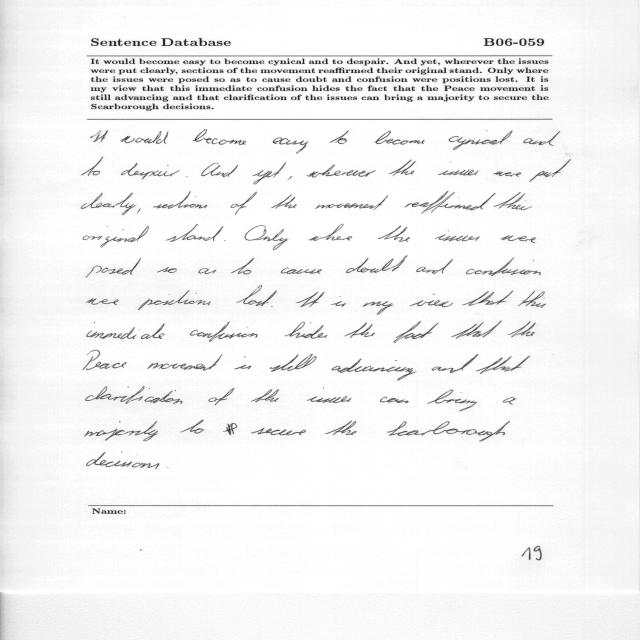 Sentence Database B06-059
It would become easy to become cynical and to despair. And yet, wherever the issues
were put clearly, sections of the movement reaffirmed their original stand. Only where
the issues were posed so as to cause doubt and confusion were positions lost. It is
my view that this immediate confusion hides the fact that the Peace movement is
still advancing and that clarification of the issues can bring a majority to secure the
Scarborough decisions.
It would become easy to become cynical and
to despair. And yet, wherever the issues were put
clearly, sections of the movement reaffirmed their
original stand. Only where the issues were
posed so as to cause doubt and confusion
were positions lost. It is my view that this
immediate confusion hides the fact that the
Peace movement is still advancing and that
clarification of the issues can bring a
majority to secure the Scarborough
decisions.
Name:
19